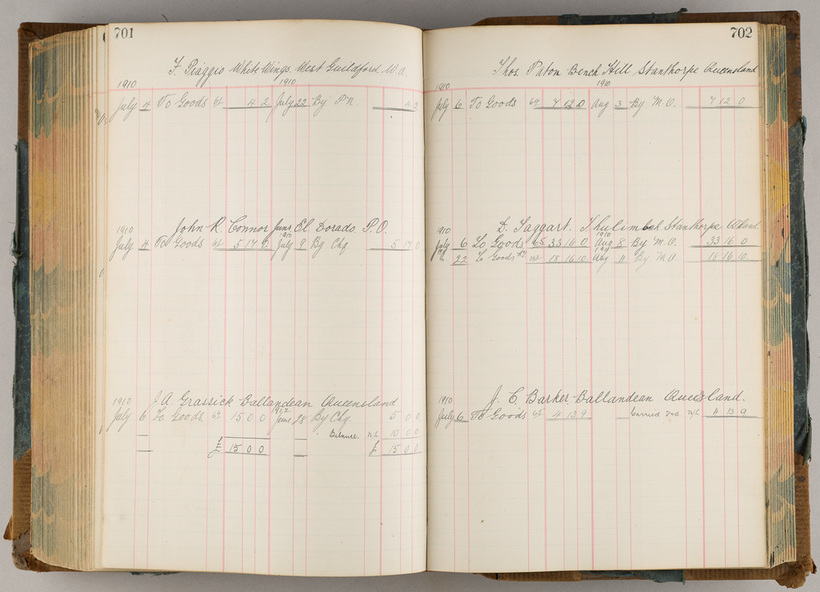 701
F. Piaggio White Wings West Guildford W.A.
1910 1910
July 4 To Goods 4 2 July 22 By P.N. 4 2
John R. Connor Junr El Dorado P.O.
1910 1910
July 4 To Goods 5 17 9 July 9 By Chq 5 17 9
J A Grassick Ballandean Queensland
1910 1912
July 6 To Goods 15 0 0 June 28 By Chq 5 0 0
Balance 10 0 0
£ 15 0 0 £ 15 0 0
702
Thos. Paton Bench Hill Stanthorpe Queensland
1910 1910
July 6 To Goods 7 12 0 Aug 3 By M.O. 7 12 0
D. Taggart. Thulimbah Stanthorpe
1910 1910
July 6 To Goods 33 16 0 Aug 8 By M.O. 33 16 0
22 To Goods 18 16 10 Aug 11 By M.O 18 16 10
J. C Barker Ballandean Queensland.
1910
July 6 To Goods 4 13 9 Carried 4 13 9